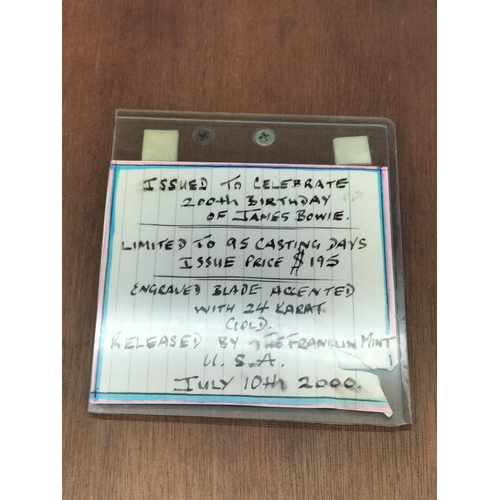 ISSUED TO CELEBRATE
200th BIRTHDAY
OF JAMES BOWIE.
LIMITED TO 95 CASTING DAYS
ISSUE PRICE $195
ENGRAVED BLADE ACCENTED
WITH 24 KARAT
GOLD.
RELEASED BY THE FRANKLIN MINT
U.S.A.
JULY 10th 2000.